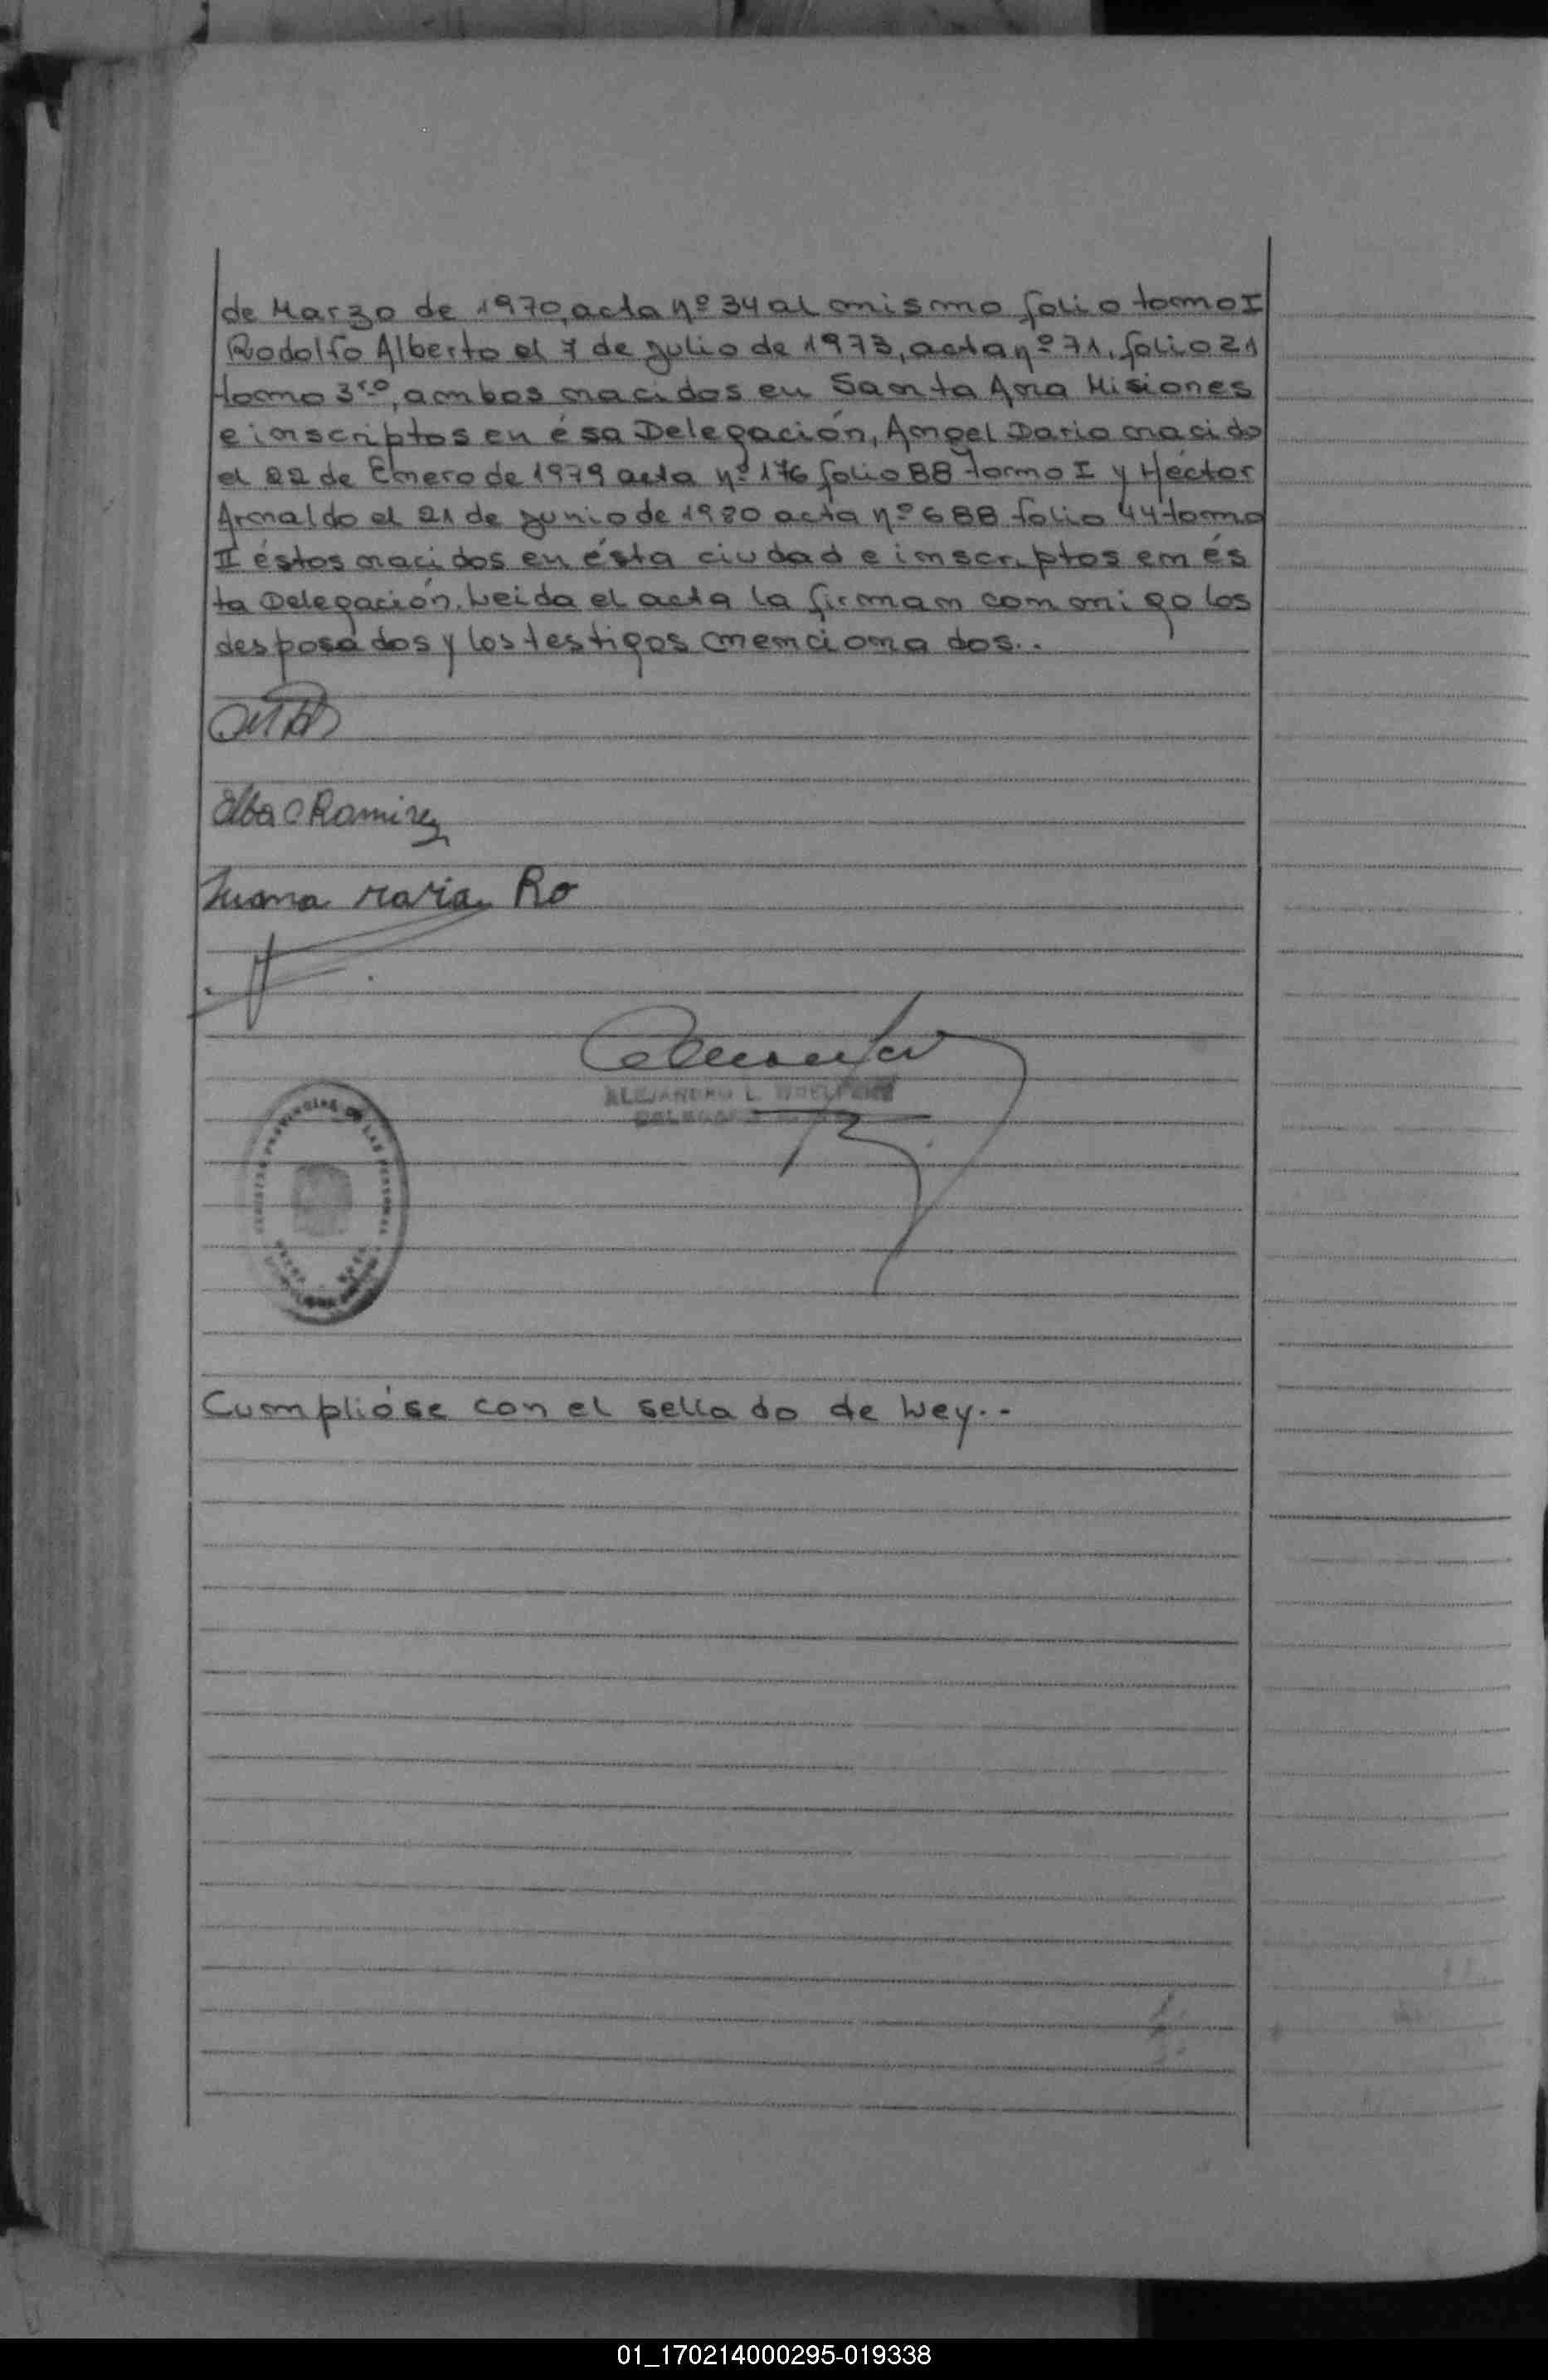 de Marzo de 1970, acta nº 34 al mismo folio tomo I
Rodolfo Alberto el 7 de Julio de 1973, acta nº 71, folio 21
tomo 3ro, ambos nacidos en Santa Ana Misiones
e inscriptos en ésa Delegación, Angel Dario nacido
el 22 de Enero de 1979 acta nº 176 folio 88 tomo I y Héctor
Arnaldo el 21 de Junio de 1980 acta nº 688 folio 44 tomo
II éstos nacidos en ésta ciudad e inscriptos en és
ta Delegación. Leida el acta la firman conmigo los
desposados y los testigos mencionados..
Elba C Ramirez
Juana maria Ro
ALEJANDRO L.
PROVINCIAL DE LAS PERSONAS
Cumplióse con el sellado de Ley.-
01_170214000295-019338